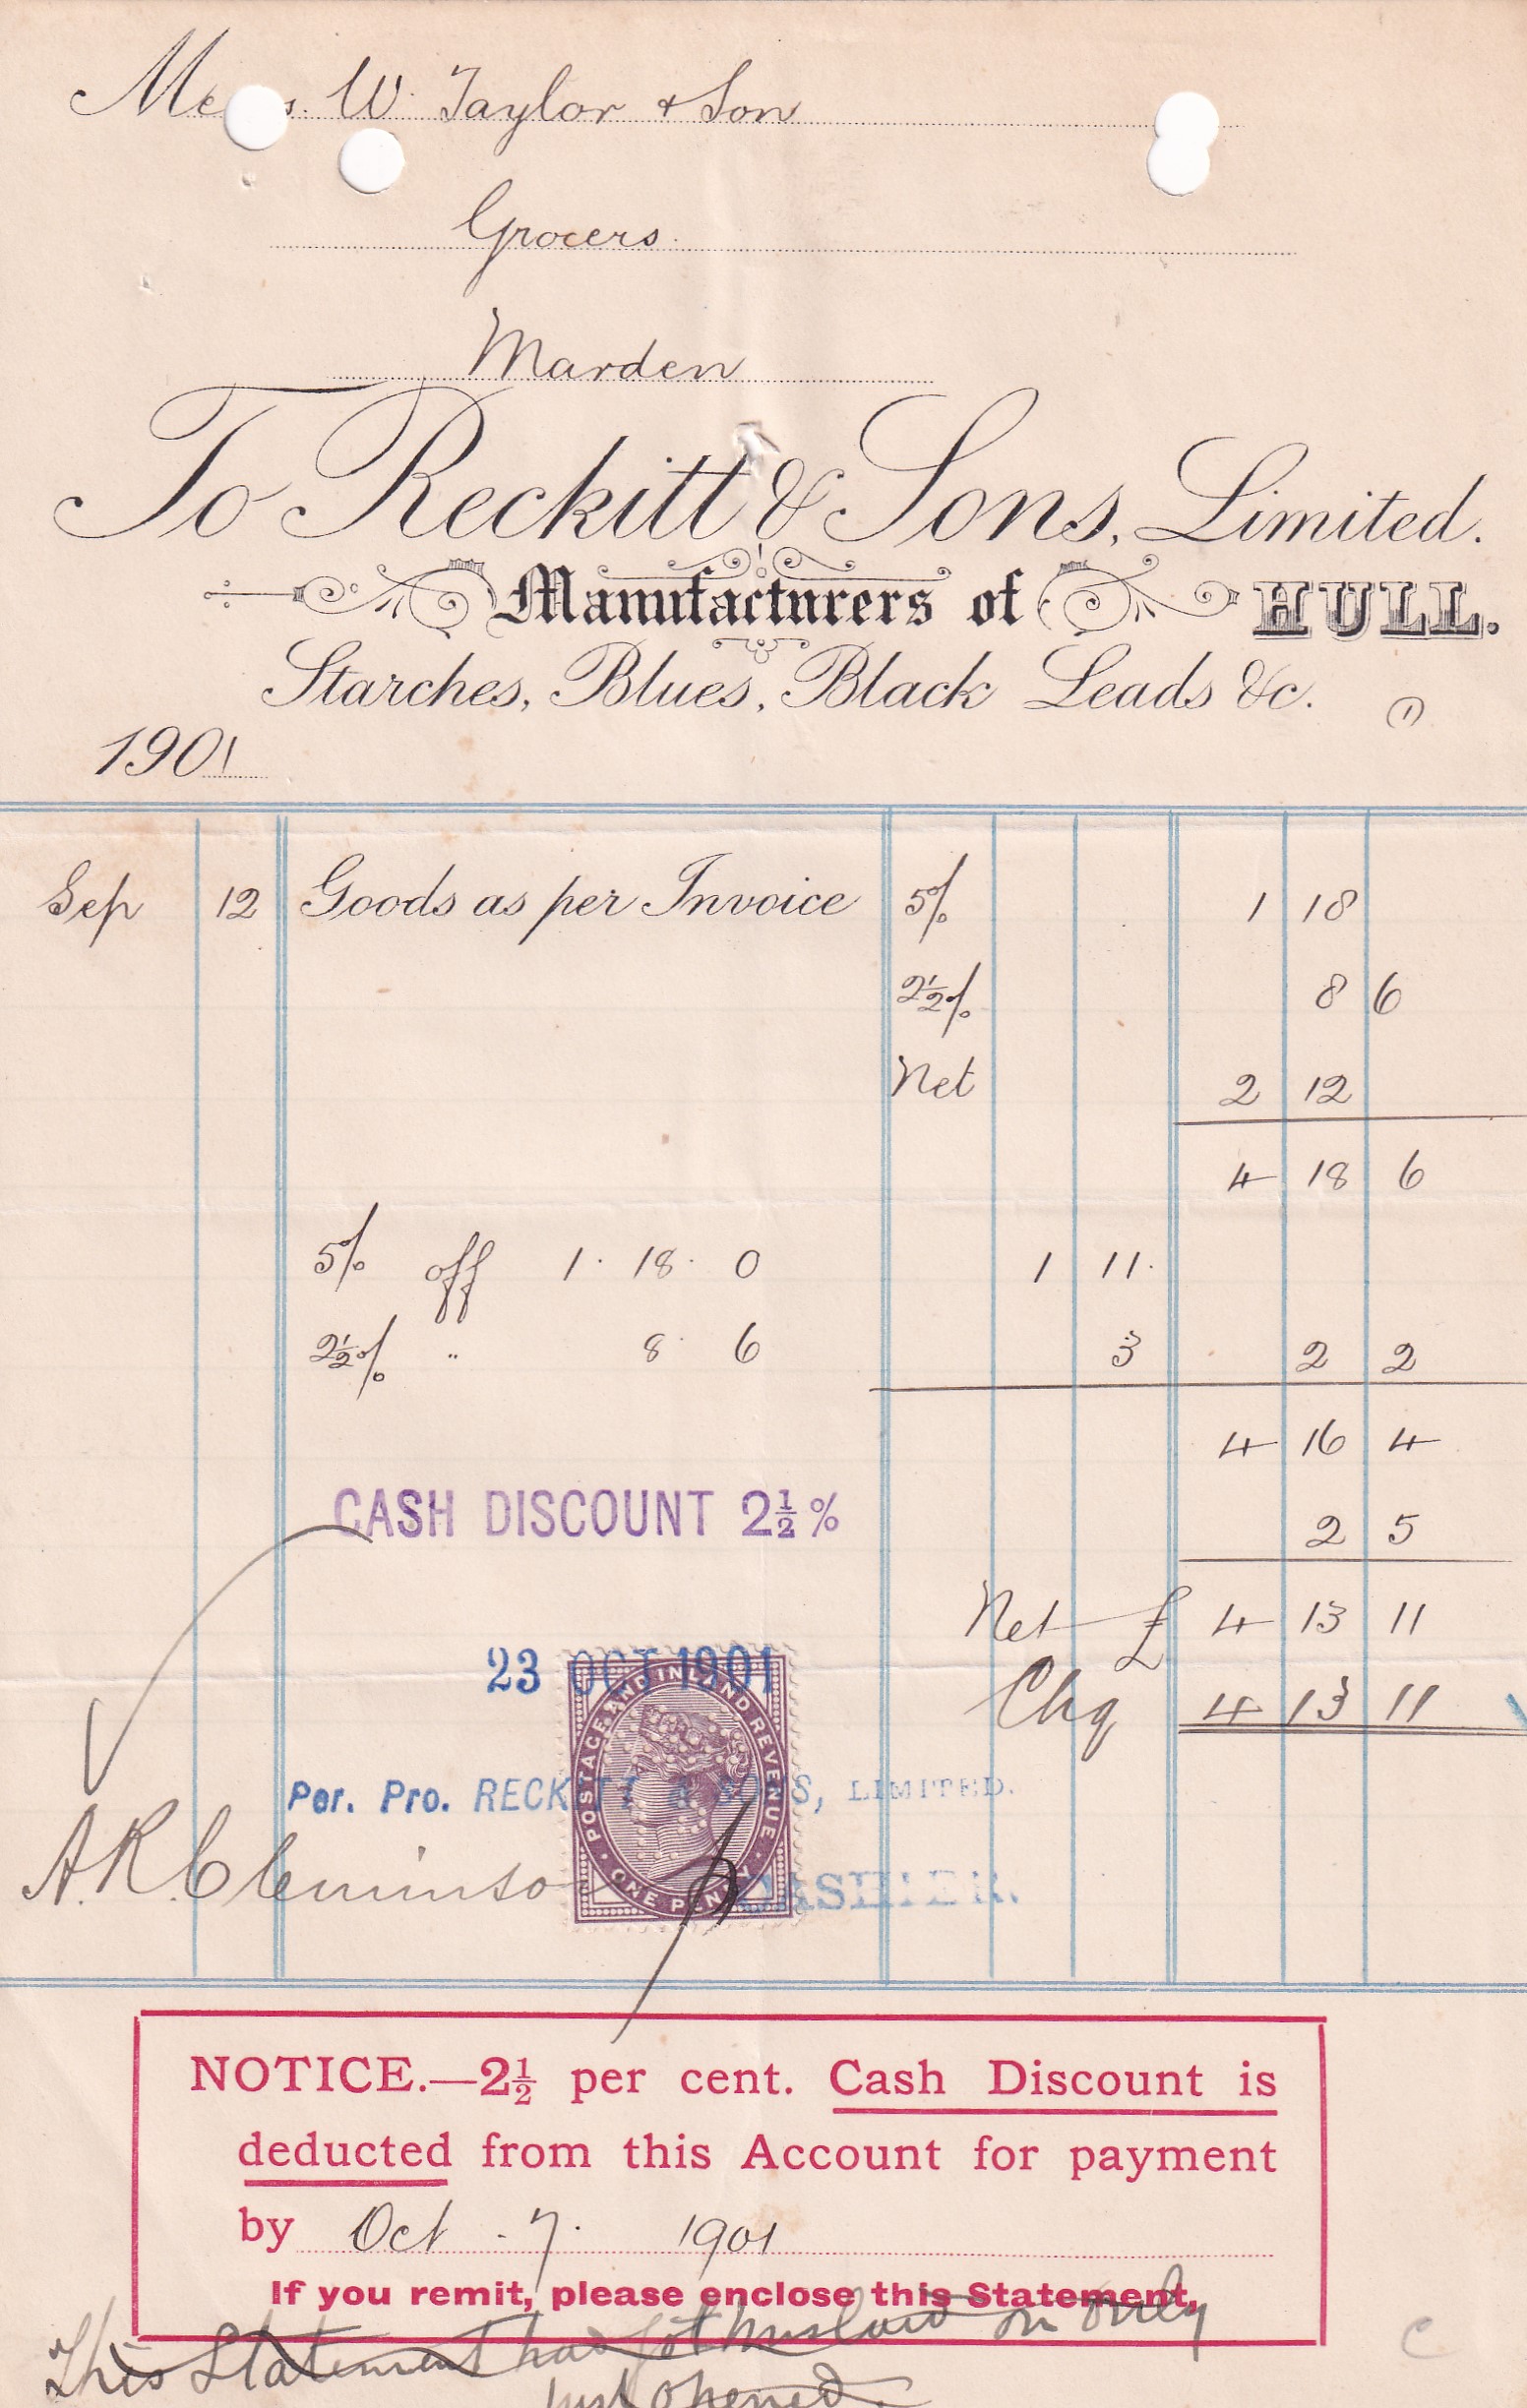 Me s. W. Taylor & Son
Grocers.
Marden
To Reckitt & Sons, Limited.
Manufacturers of HULL.
Starches, Blues, Black Leads &c.
1
1901
Sep 12 Goods as per Invoice 5% 1 18
2½% 8 6
Net 2 12
4 18 6
5% off 1 . 18 . 0 1 11.
2½% " 8 . 6 3 2 2
4 16 4
CASH DISCOUNT 2½% 2 5
Net £ 4 13 11
23 OCT 1901
POSTAGE AND INLAND REVENUE
ONE PENNY
Chq 4 13 11
Per. Pro. RECKITT & SONS, LIMITED.
A.R. CASHIER.
NOTICE.—2½ per cent. Cash Discount is
deducted from this Account for payment
by Oct . 7 . 1901
If you remit, please enclose this Statement,
This Statement had got mislaid on only
just opened.